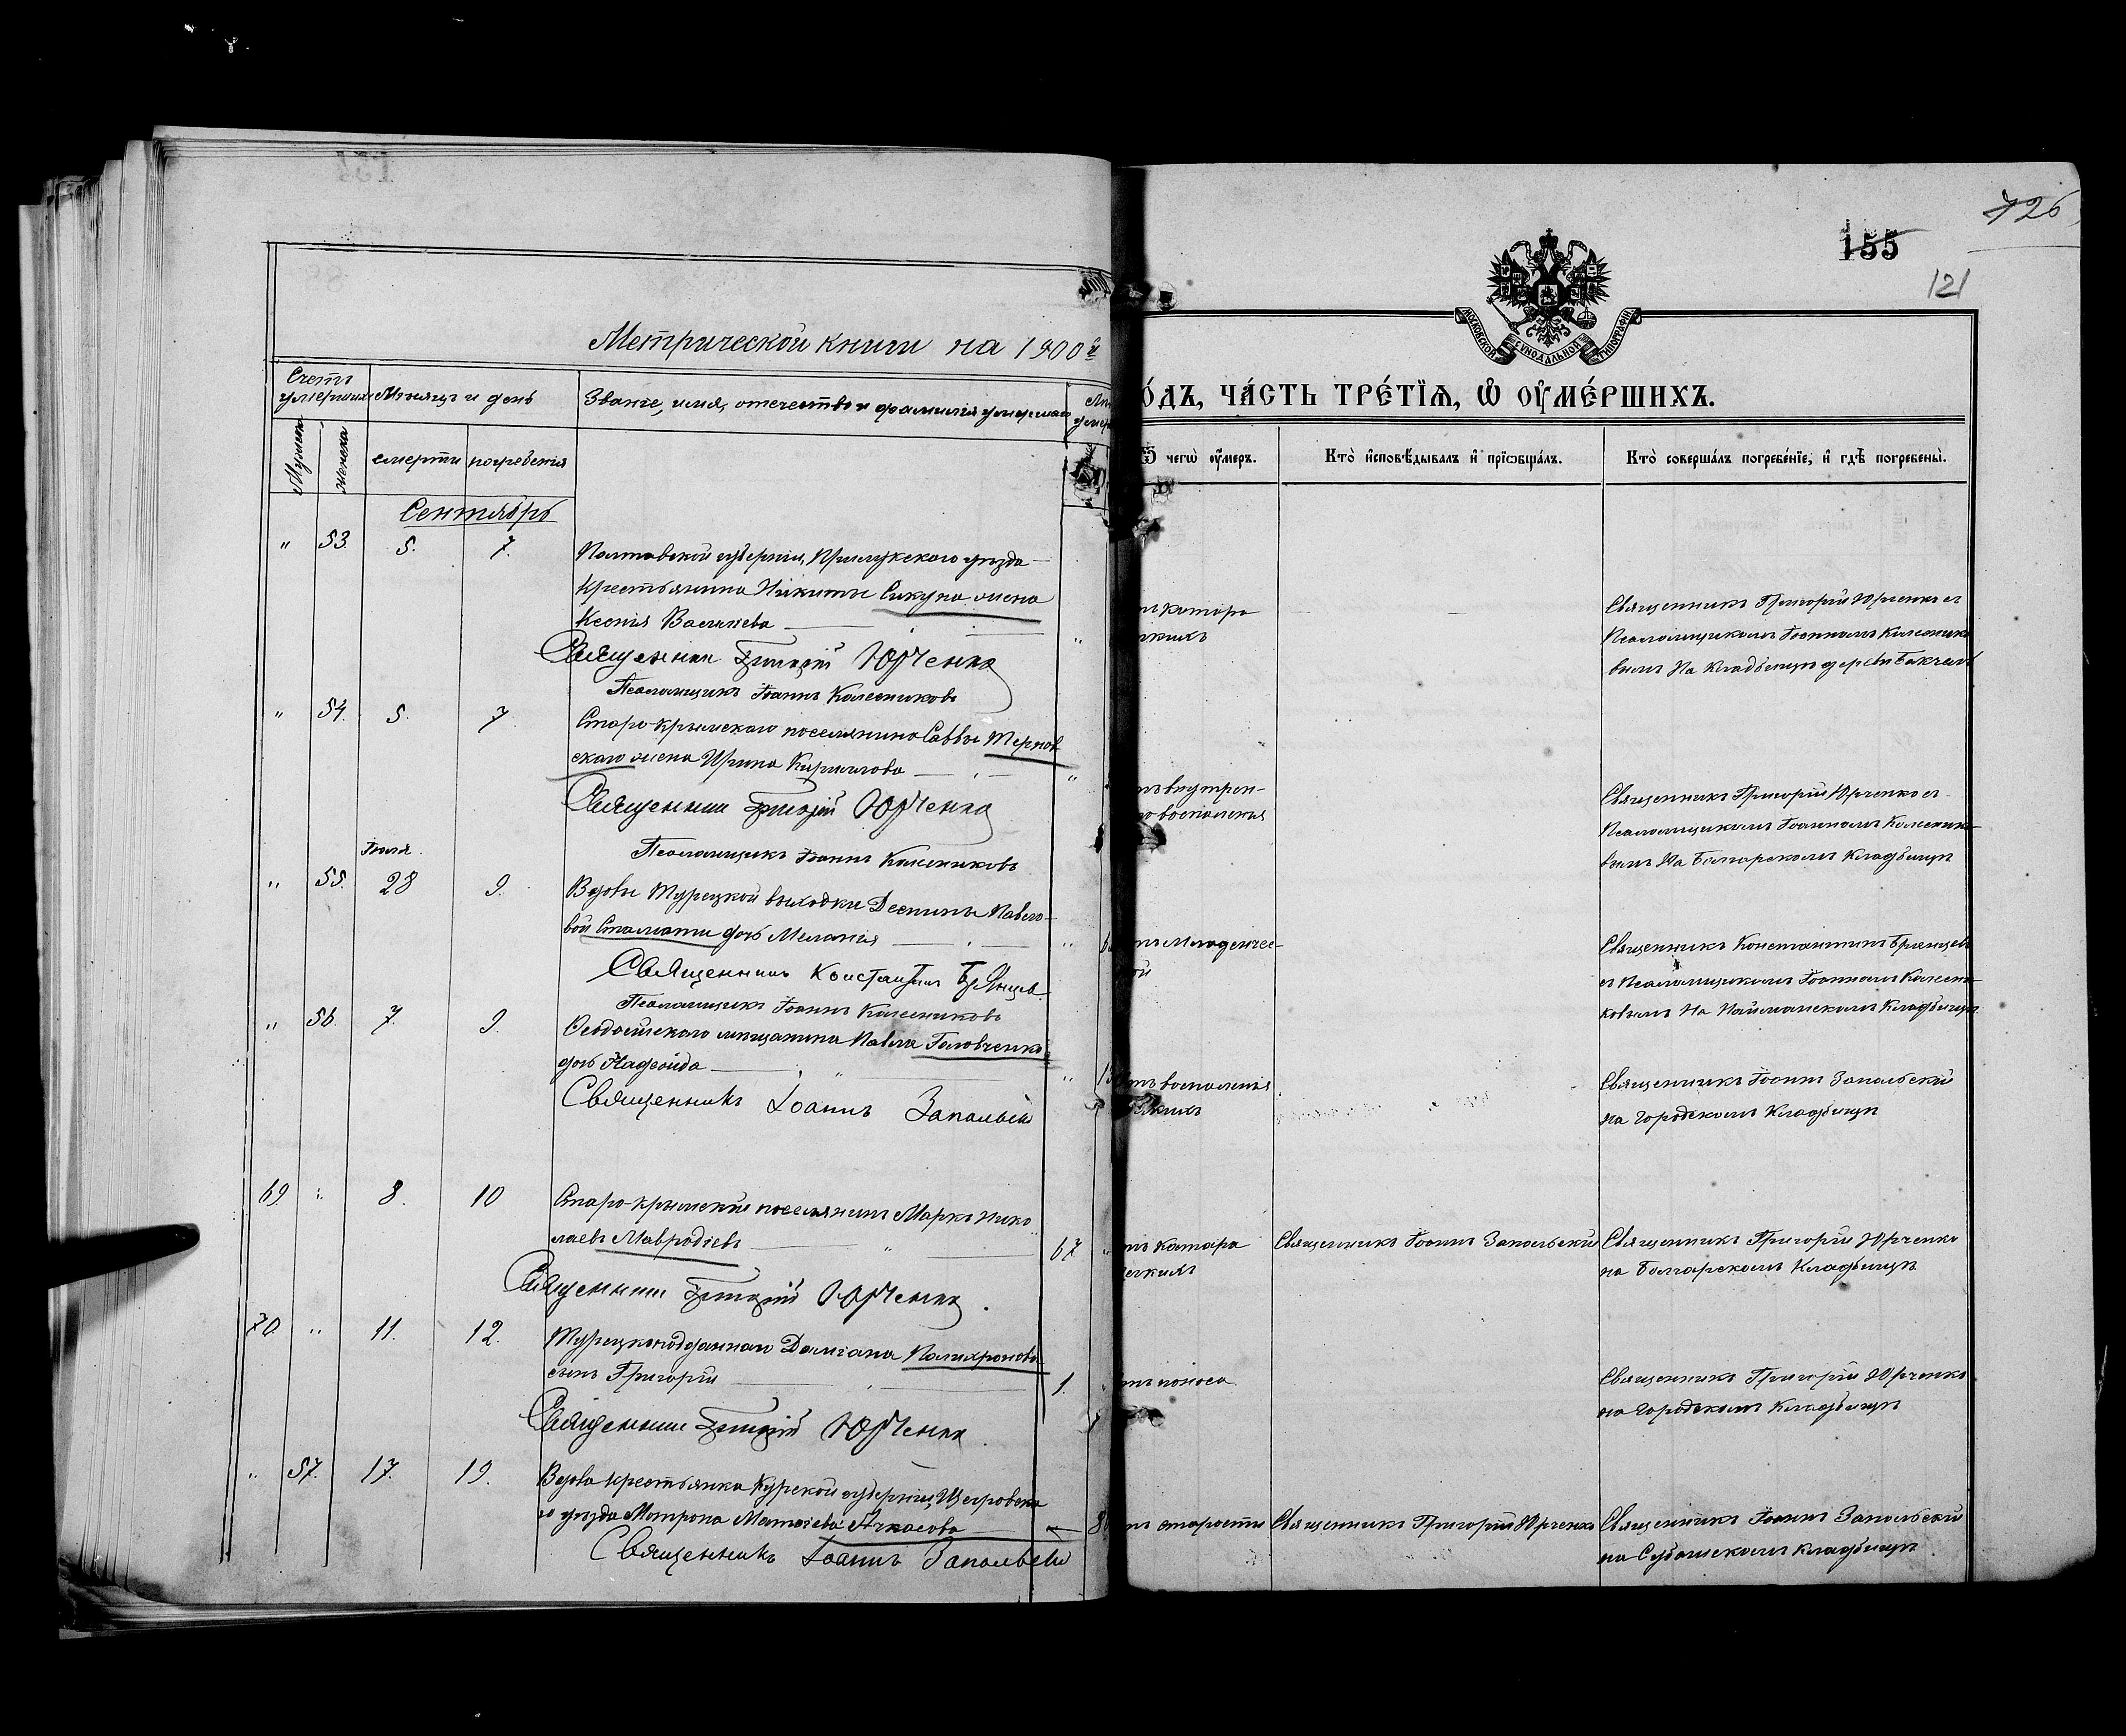 726
155
121
Метрической книги на 1900й
ОДЪ, ЧАСТЬ ТРЕТІѦ, Ѿ ОУМЕРШИХЪ.
МОСКОВСКОЙ СѴНОДАЛЬНОЙ ТИПОГРАФІИ
Счетъ умершихъ
Мѣсяцъ и день
Званіе, имя, отечество и фамилія умершаго
Мужеска
женска
смерти
погребенія
Ѿ чегѡ оумеръ.
Кто исповѣдывалъ и пріѡбщалъ.
Кто совершалъ погребеніе, и гдѣ погребены.
Сентябрь
" 53. 5. 7.
Полтавской губерніи, Прилукского уезда
крестьянина Никиты Сикуна жена
Ксенія Васильева
Священник Григорій Юрченко
Псаломщикъ Іоаннъ Колесниковъ
катара
Священникъ Григорій Юрченко съ
Псаломщикомъ Іоанномъ Колеснико-
вымъ На Кладбищѣ
" 54. 5. 7.
Старо-Крымскаго поселянина Саввы Тернов
скаго жена Ирина Кириллова
Священник Григорій Юрченко
Псаломщикъ Іоаннъ Колесниковъ
внутрен-
воспаленія
Священникъ Григорій Юрченко съ
Псаломщикомъ Іоанномъ Колеснико-
вымъ На Болгарскомъ Кладбищѣ
Іюля
" 55. 28 9.
Вдовы Турецкой выходки Деспины Павло-
вой Стамати дочь Меланія
Священникъ Константин Брянцев
Псаломщикъ Іоаннъ Колесниковъ
младенчес-
Священникъ Константинъ Брянцевъ
съ Псаломщикомъ Іоанномъ Колесни-
ковымъ На Найманскомъ Кладбищѣ
" 56. 7. 9.
Ѳеодосійского мещанина Павла Головченко
дочь Надежда
Священникъ Іоаннъ Запольскій
воспаленія
Священникъ Іоаннъ Запольскій
на городскомъ Кладбищѣ
69. " 8. 10
Старо-Крымскій поселянинъ Маркъ Нико
лаевъ Мавродіевъ
67
Священник Григорій Юрченко.
катара
Священникъ Іоаннъ Запольскій
Священникъ Григорій Юрченко
на Болгарскомъ Кладбищѣ
70. " 11. 12.
Турецкоподданнаго Даміана Полихронова
сынъ Григорій
1.
Священник Григорій Юрченко
поноса
Священникъ Григорій Юрченко
на городскомъ Кладбищѣ
" 57. 17. 19.
Вдова крестьянка Курской губерніи, Щигровска
го уезда Матрона Матвіева Ачкасова
Священникъ Іоаннъ Запольскій
старости
Священникъ Григорій Юрченко
Священникъ Іоаннъ Запольскій
на Субашскомъ кладбищѣ